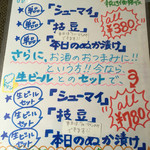 単品 「シューマイ」
単品 「枝豆」
単品 「本日のぬか漬け」
all ¥380
さらに、お酒のおつまみに!!
という方!!今なら
生ビールとのセットで
生ビールセット 「シューマイ」
生ビールセット 「枝豆」
生ビールセット 「本日のぬか漬け」
all ¥780